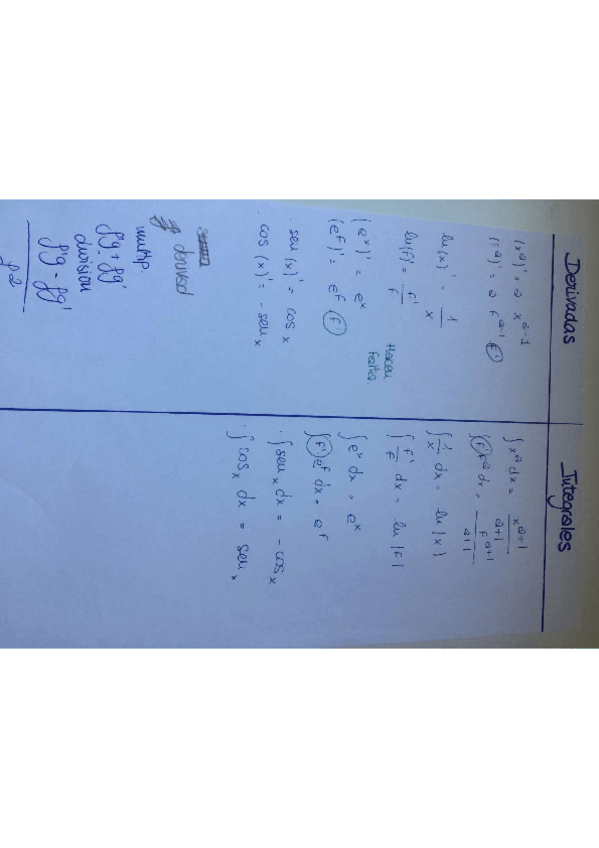 Derivadas
(x^a)' = a x^(a-1)
(f^a)' = a f^(a-1) f'
ln(x)' = 1/x
ln(f)' = f'/f
Hacen
falta.
(e^x)' = e^x
(e^f)' = e^f (f')
. sen(x)' = cos x
. cos(x)' = - sen x
derivad
multip.
f'g + fg'
division
f'g - fg'
g^2
Integrales
∫x^a dx = x^(a+1)/a+1
∫(f') f^a dx = f^(a+1)/a+1
∫1/x dx = ln|x|
∫f'/f dx = ln|f|
∫e^x dx = e^x
∫(f') e^f dx = e^f
. ∫sen x dx = - cos x
. ∫cos x dx = sen x